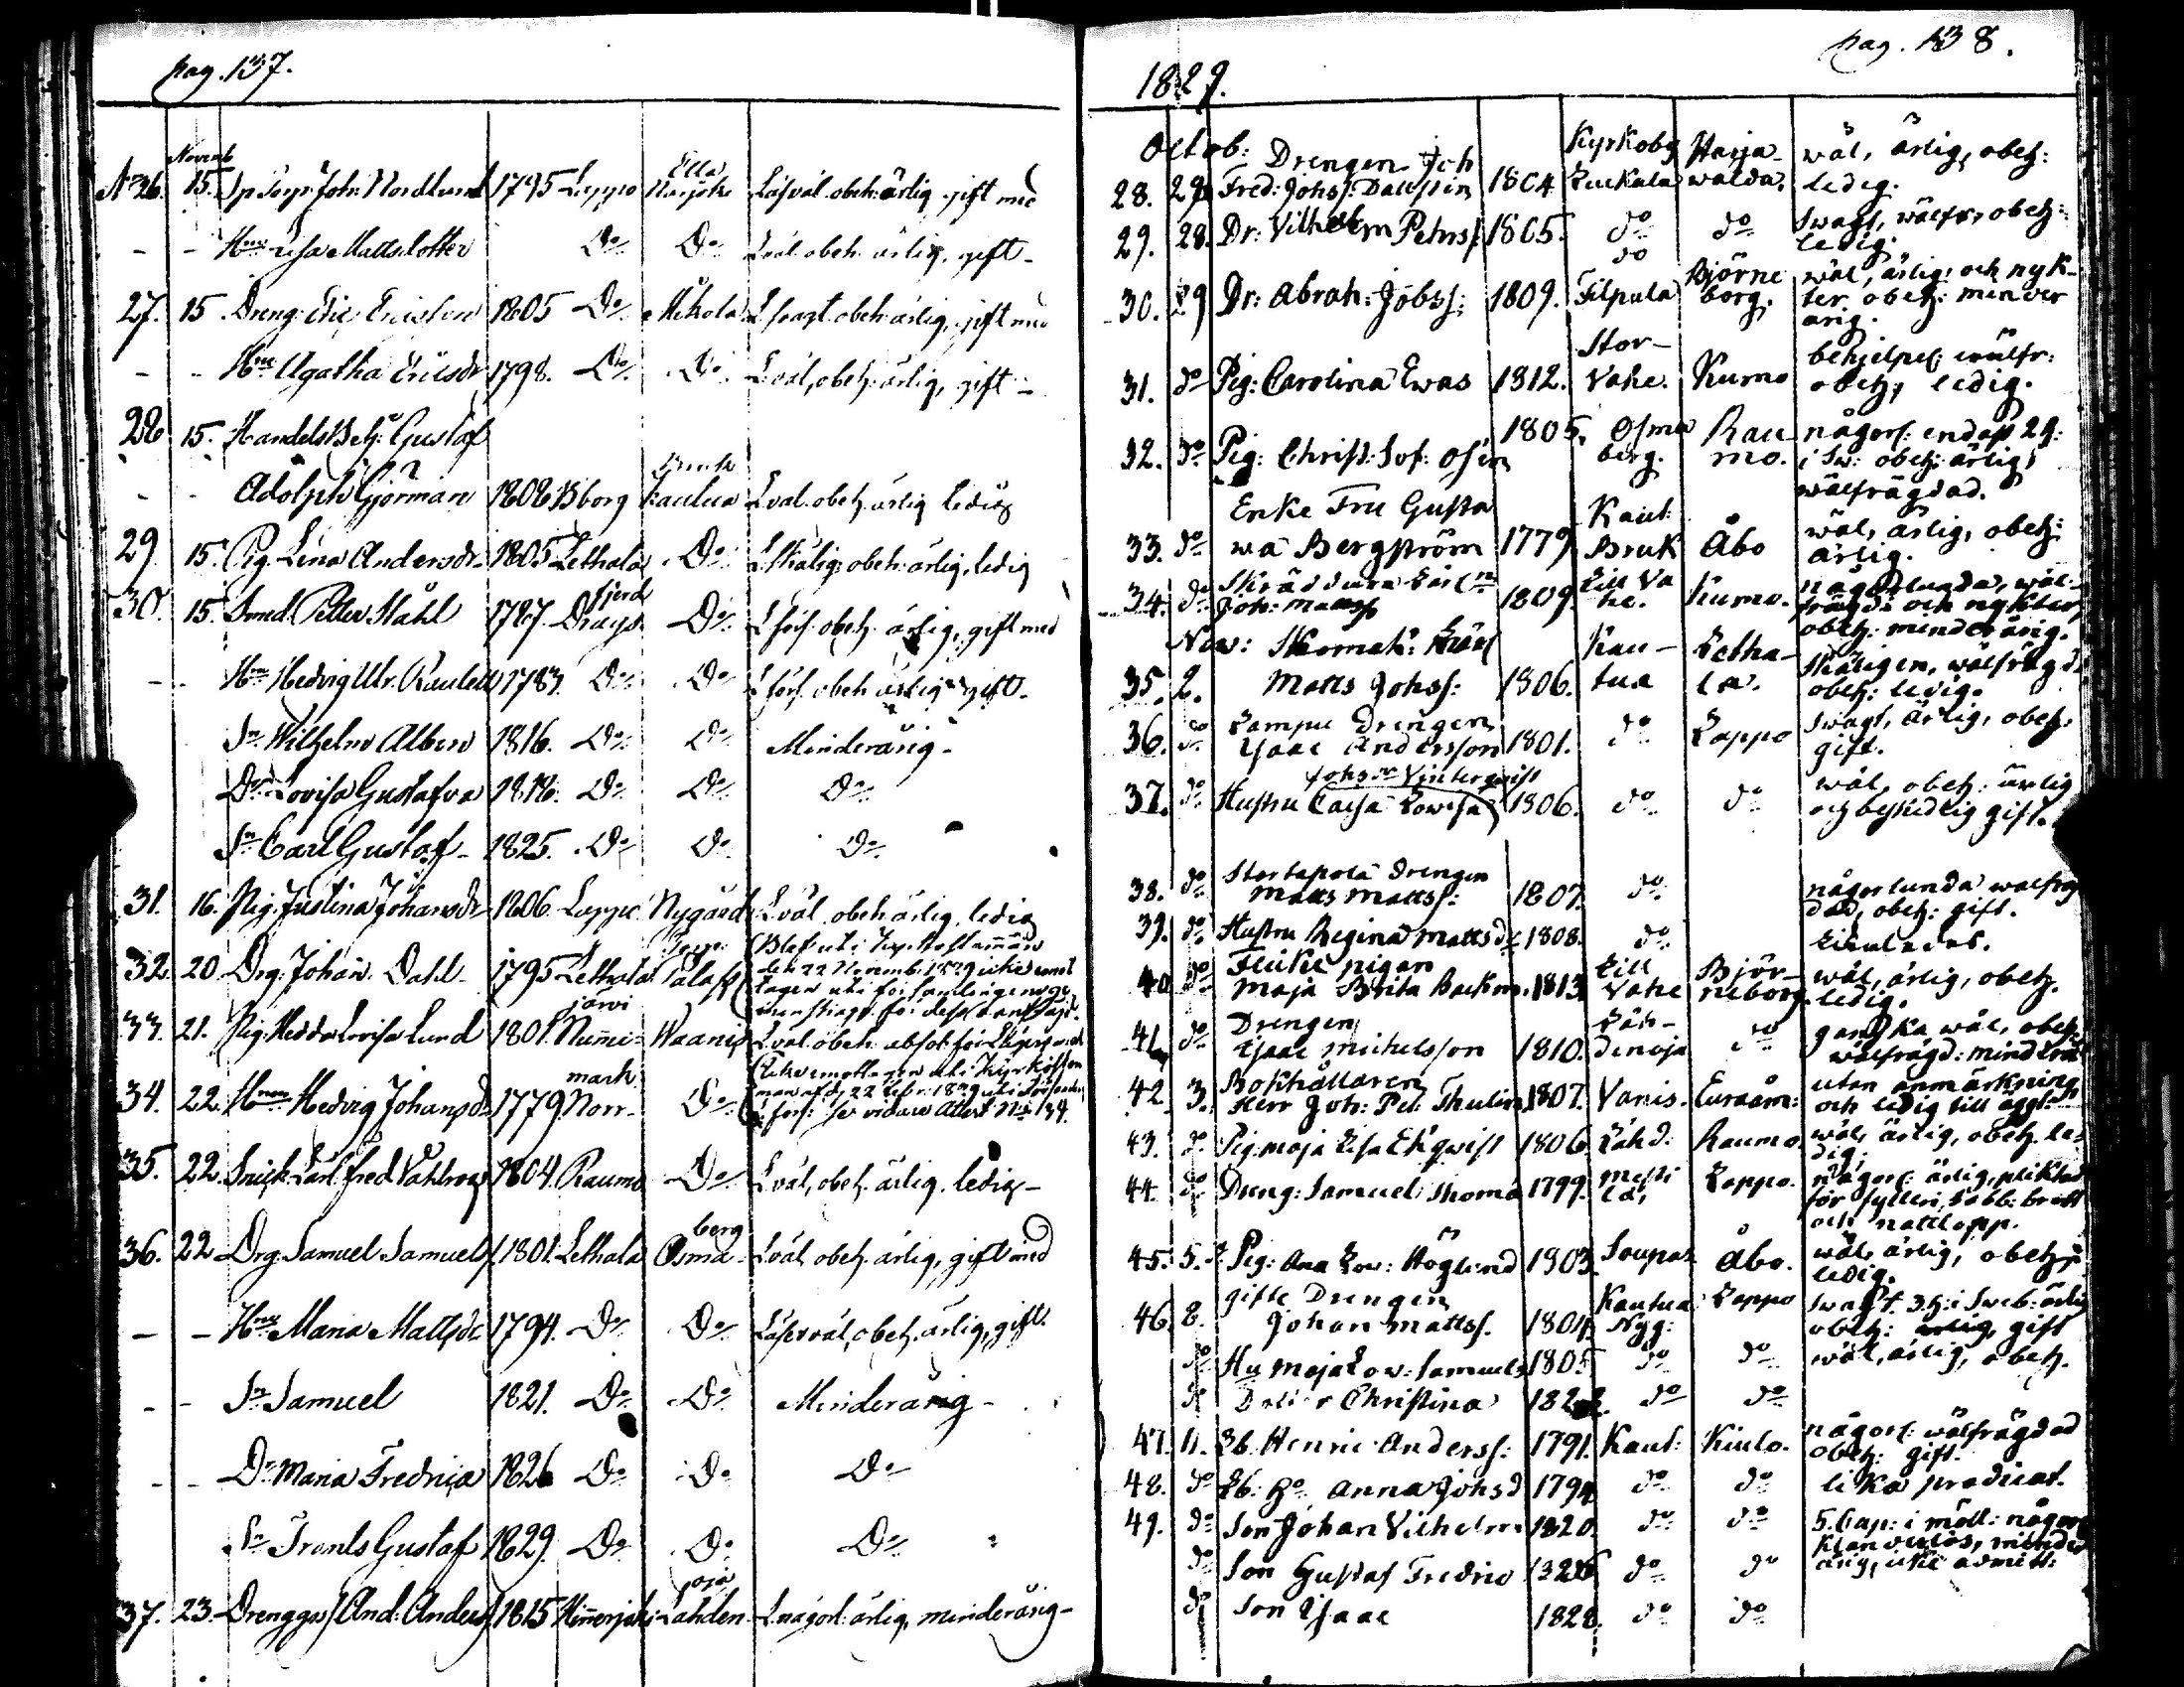 pag. 137.
Novemb
No 26. 15. Sp. Torp. Joh. Nordlund 1795 Lappo Ella Harjohe Läs väl. obeh. ärlig gift med
- - Hu Lisa Mattsdotter Do Do L. väl obeh. ärlig, gift -
27. 15 Dreng Eric Ericsson 1805 Do Mikola L. svagt. obeh. ärlig, gift med
- - Hu Agatha Ericsdr 1798. Do Do L. väl, obeh. ärlig, gift -
28 15. Handels Betj. Gustaf
- - Adolph Gjörman 1808 Bborg Kautua L. väl. obeh. ärlig ledig
29 15. Pig. Lena Andersdr. 1805 Lethala Do L. skälig: obeh. ärlig, ledig
30. 15. Smed. Petter Ståhl 1787. Drags fjerd Do L. förs. obeh. ärlig, gift med
- - Hu Hedvig Ulr. 1783. Do Do L. förs. obeh. ärlig gift.
Sn Wilhelm Albin 1816. Do Do Minderårig -
Dr Lovisa Gustafva 1818. Do Do Do
Sn Carl Gustaf - 1825. Do Do Do
31. 16. Pig. Justina Johansdr 1806 Lappo Nygård L. väl. obeh. ärlig ledig
32. 20 Drg. Johan Dahl 1795 Lethala
33. 21. Pig. Hedda Lovisa Lund 1801. järvi Nummi- Waanis L. väl. obeh.
34. 22. Hu Hedvig Johansd. 1779 mark Norr- Do
35. 22. Snick. Carl Fred 1804. Raumo Do L. väl, obeh. ärlig. ledig -
36. 22 Drg. Samuel Samuels. 1801. Lethala berg Osma- L. väl obeh. ärlig, gift med
- - Hu Maria Mattsdr 1794. Do Do Läser väl, obeh. ärlig, gift.
- - Sn Samuel 1821. Do Do Minderårig -
- - Dr Maria Fredrica 1826 Do Do Do
Sn Frants Gustaf 1829. Do Do Do
37. 23. And: Anders. 1815 Hinnerjoki oja Lahden- L. någorl: ärlig, minderårig -
pag. 138.
1829.
Octob: Drengen Joh Kyrkoby Harja- wäl, ärlig, obeh:
28. 29 Fred: Johss: Dahlsten 1804 walda. ledig.
29. 28. Dr: Vilhelm Petrss. 1805. do do Swagt, wälfr, obeh: ledig.
30. 29 Dr: Abrah: Jobss: 1809. do Filpula Björneborg. wäl, ärlig, och nyk-
ter. obeh: minder
årig.
31. do Pig: Carolina Ewas 1812. Stor- Vahe. Kumo behjelpel: wälfr:
obeh, ledig.
32. do Pig: Christ: Sof: Osén 1805. Osma berg. Rau mo. någorl: endast
i Sw: obeh: ärlig
wälfrägdad.
Enke Fru Gusta
33. do wa Bergström 1779 Kaut: Bruk Åbo wäl, ärlig, obeh:
ärlig.
34. do Skräddare Lärl:n Joh: Matts. 1809. Lill Va he. Kumo. någorlunda, wäl-
frägd och nykter,
obeh: minderårig.
Nov: Skomak: Lärl
35. 2. Matts Johss: 1806. Kau- tua Letha- la. Skäligen, wälfrägd
obeh: ledig.
36. do Lampu Drengen
Isaac Andersson 1801. do Lappo Swagt, ärlig, obeh.
gift.
Johs:r Vinterqvist
37. do Hustru Caisa Lowisa 1806. do do wäl, obeh: ärlig
och beskedlig gift.
38. do Stortapola Drengen
Matts Mattss: 1807. do någorlunda wälfräg
dad, obeh: gift.
39. do Hustru Regina Mattsd. 1808. do likaledes.
40 do pigan
Maja Brita Backm. 1813. Lill Vahe Björ- neborg wäl, ärlig, obeh.
ledig.
41. do Drengen
Isaac Michelsson 1810. Läh- denoja do ganska wäl, obeh:
wälfrägd: mindeår
42. 3. Bokhållaren
Herr Joh: Pet: Thulin 1807. Vanis. Euraåm: utan anmärkning
och ledig till äggt.
43. do Pig: Maja Lisa Ekqwist 1806. Lähd: Raumo. wäl, ärlig, obeh. le-
dig.
44. do Dreng: Samuel Thoma 1799. Lappo. någorl: ärlig, pliktad
för fylleri, Sabb: brott
och nattlopp.
45. 5. Pig: Ana Low: Höglund 1803. Soupas Åbo. wäl, ärlig, obeh.
ledig.
46. 8. gifte Drengen
Johan Mattss. 1804. Kautua Nyg: Lappo Swagt. 3.H: i Sweb: ärlig
obeh: ärlig, gift
do Hu Maja Low: Samuels 1805 do do wäl, ärlig, obeh.
do Dotter Christina do do
47. 11. Lb. Henric Anderss: 1791. Kaut: Kiulo. någorl: wälfrägdad
obeh: gift.
48. do Lb: Ho Anna Johsd 1794 do do lika predicat.
49. do Son Johan Vilhelm 1820. do do 5. Cap: i möll: någorl
klanderlös, minder
årig, icke admitt:
do Son Gustaf Fredric 1826 do do
do Son Isaac 1828. do do